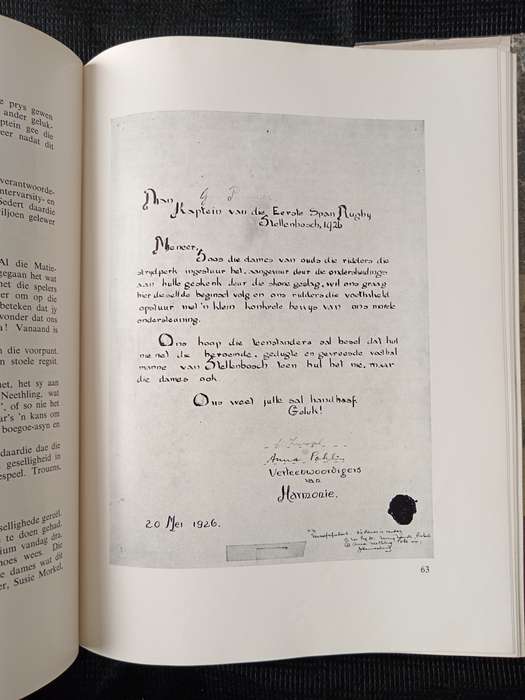 e prys gewen
ander geluk-
ptein gee die
eer nadat dit
verantwoorde-
ntervarsity- en
Sedert daardie
viljoen gelewer
Al die Matie-
gegaan het wat
het die spelers
er om op die
beteken dat jy
vonder dat ons
a! Vanaand is
n die voorpunt.
n stoele regsit.
net, het sy aan
Neethling, wat
', of so nie het
ar's 'n kans om
boegoe-asyn en
daardie dae die
geselligheid in
espeel. Trouens,
sellighede gereël.
te doen gehad.
ium vandag dra,
hoes wees. Die
e dames wat dit
er, Susie Morkel,
Aan G P
Kaptein van die Eerste Span Rugby
Stellenbosch, 1926
Meneer,
Soos die dames van ouds die ridders die
strydperk ingestuur het, aangevuur deur die onderskeidings
aan hulle geskenk deur die skone geslag, wil ons graag
hierdieselfde beginsel volg en ons ridders die voetbalveld
opstuur met 'n klein konkrete bewys van ons morele
ondersteuning.
Ons hoop die teenstanders sal besef dat hul
nie net die beroemde, gedugte en gevreesde voetbal
manne van Stellenbosch teen hul het nie, maar
die dames ook.
Ons weet julle sal handhaaf.
Geluk!
Anna
Verteenwoordigers
van
Harmonie.
20 Mei 1926.
63